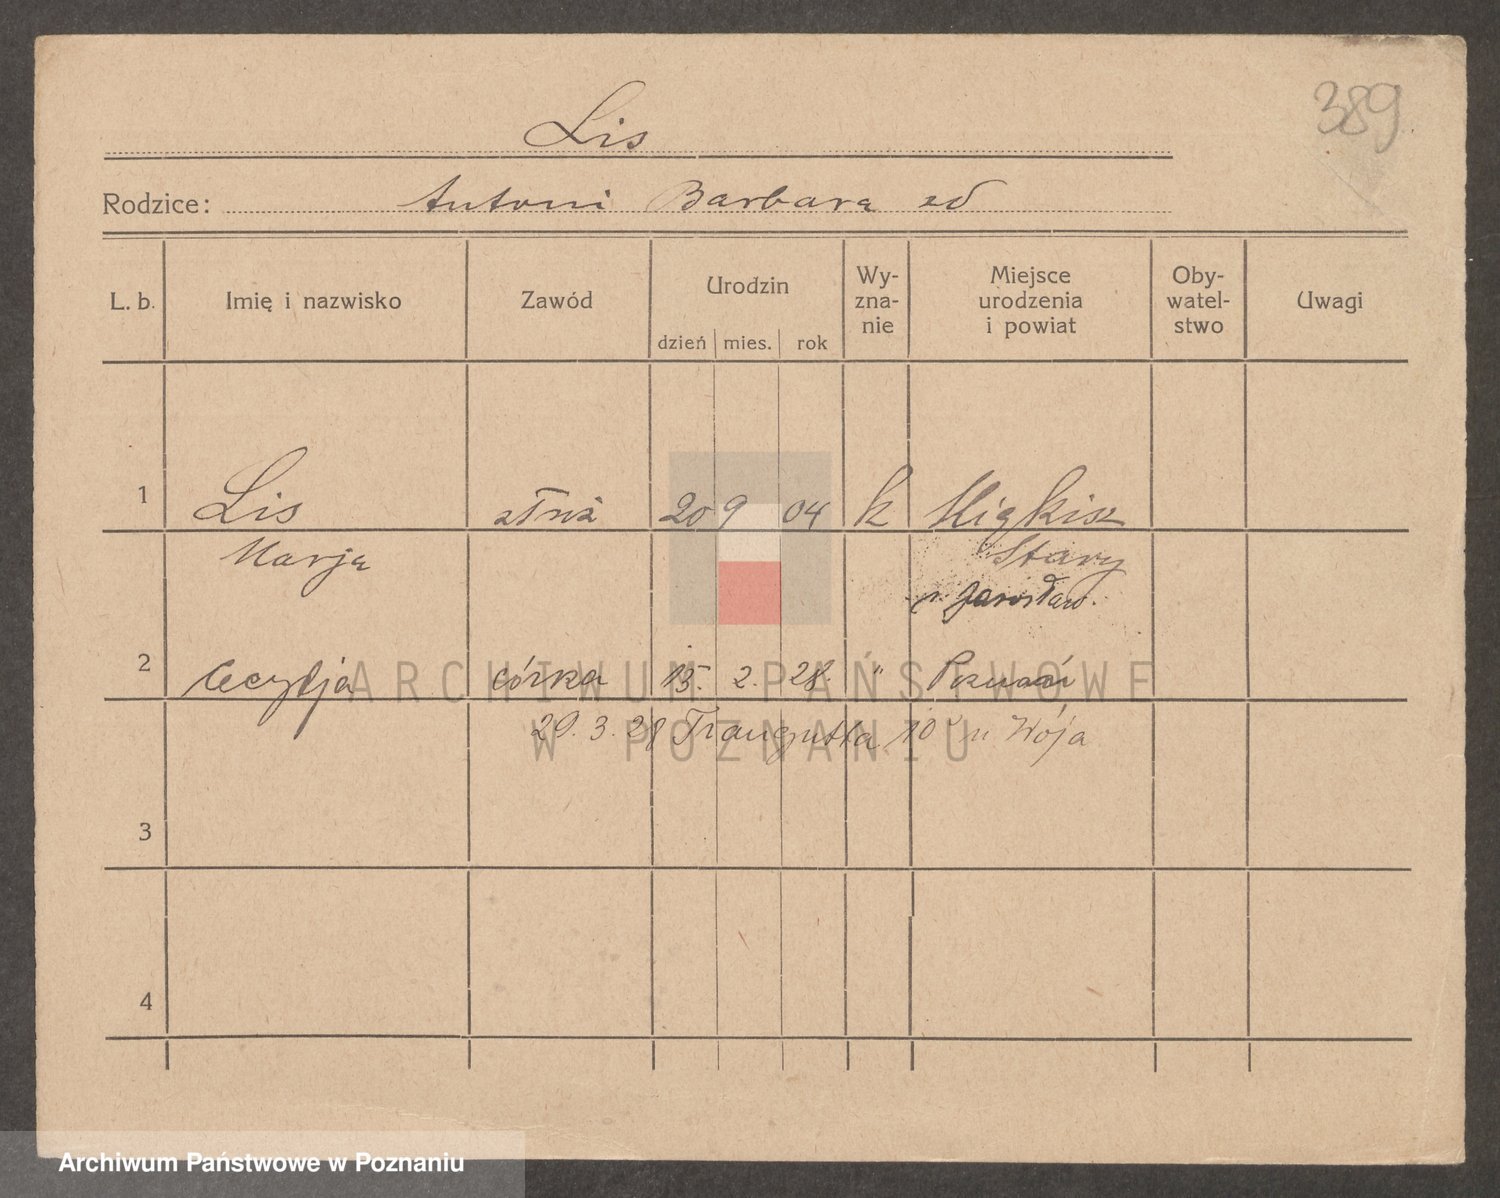 389
Lis
Rodzice: Antoni Barbara
L. b. Imię i nazwisko Zawód Urodzin dzień mies. rok Wy-zna-nie Miejsce urodzenia i powiat Oby-watel-stwo Uwagi
1 Lis służ 20 9 04 k Miękisz
Marja Stary
p. Jarosław.
2 Cecylja córka 15. 2. 28. " Poznań
29.3.28 Traugutta 10 u Wója
3
4
ARCHIWUM PAŃSTWOWE
W POZNANIU
Archiwum Państwowe w Poznaniu